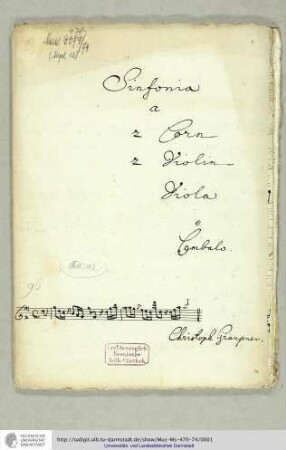 Sinfonia
a
2 Corn
2 Violin
Viola
e
Cembalo.
Christoph Graupner.
TECHNISCHE
UNIVERSITÄT
DARMSTADT
http://tudigit.ulb.tu-darmstadt.de/show/Mus-Ms-470-74/0001
Universitäts- und Landesbibliothek Darmstadt